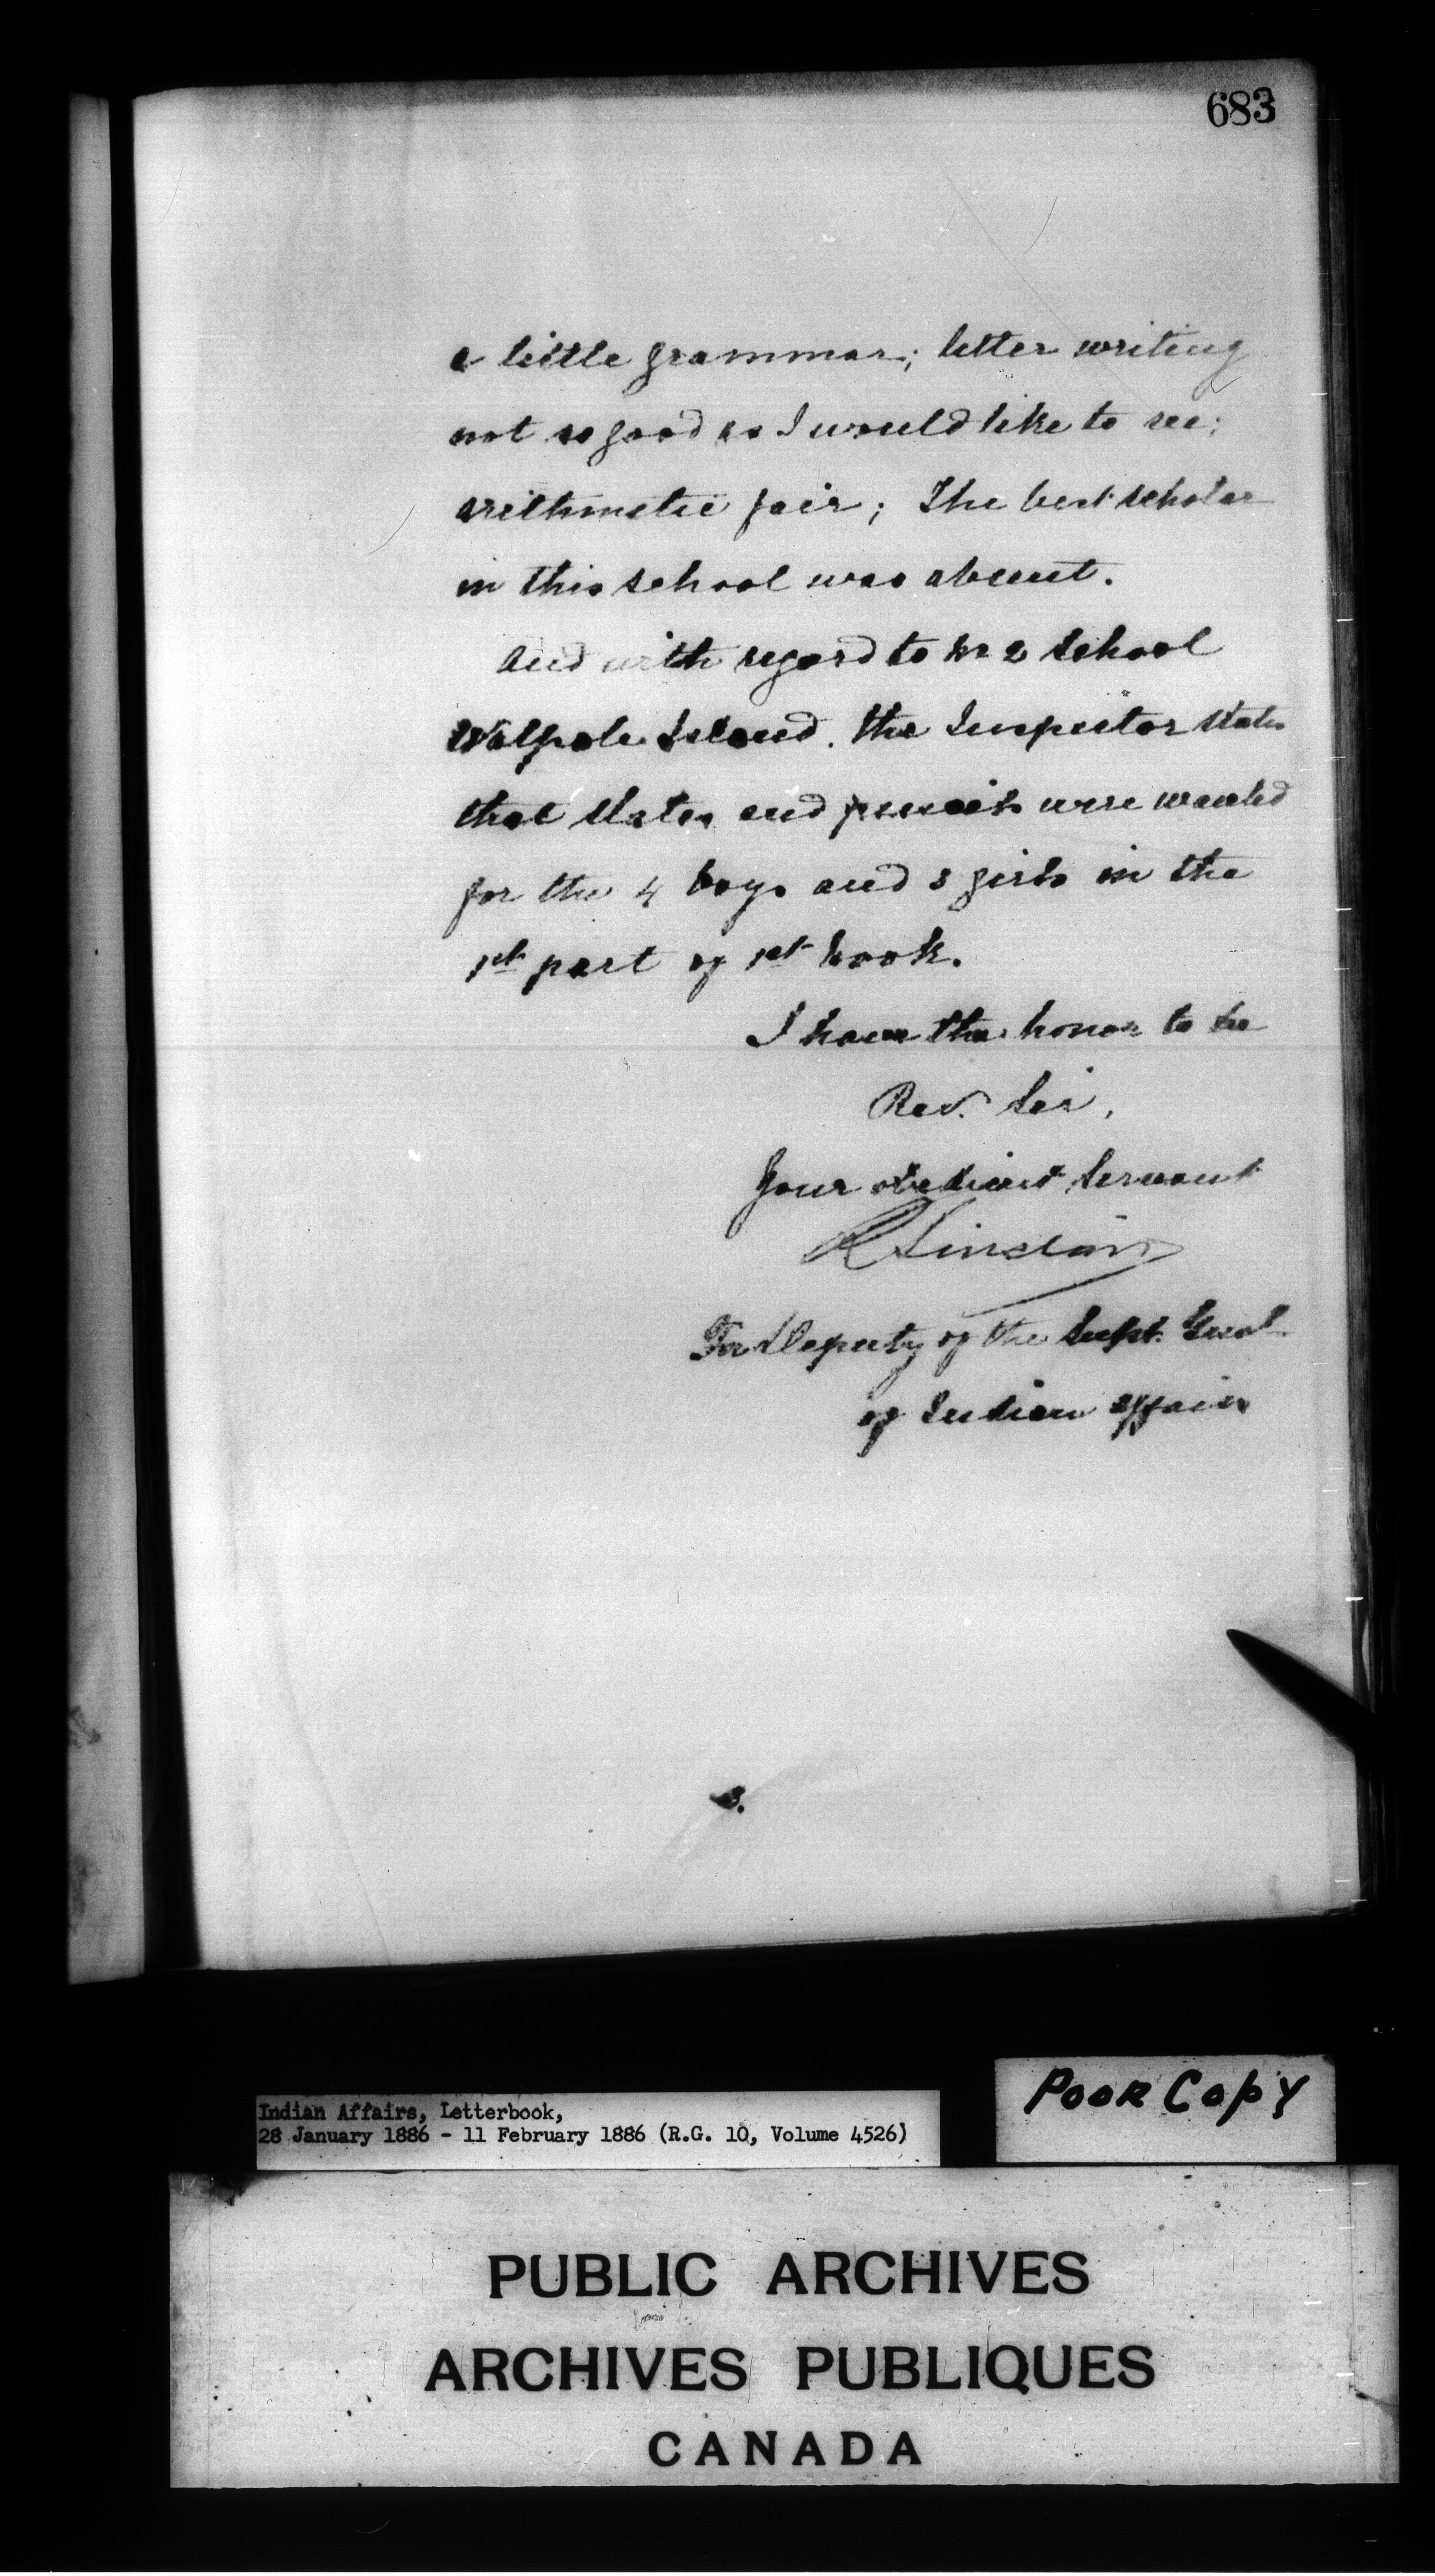 683
a little grammar; letter writing
not so good as I would like to see;
arithmetic fair; The best scholar
in this school was absent.
And with regard to No 2 School
Walpole Island. the Inspector states
that slates and pencils were wanted
for the 4 boys and 3 girls in the
1st part of 1st book.
I have the honor to be
Rev. Sir,
Your obedient Servant
R Sinclair
For Deputy of the Supt. Genl.
of Indian Affairs
Indian Affairs, Letterbook,
28 January 1886 - 11 February 1886 (R.G. 10, Volume 4526)
POOR COPY
PUBLIC ARCHIVES
ARCHIVES PUBLIQUES
CANADA